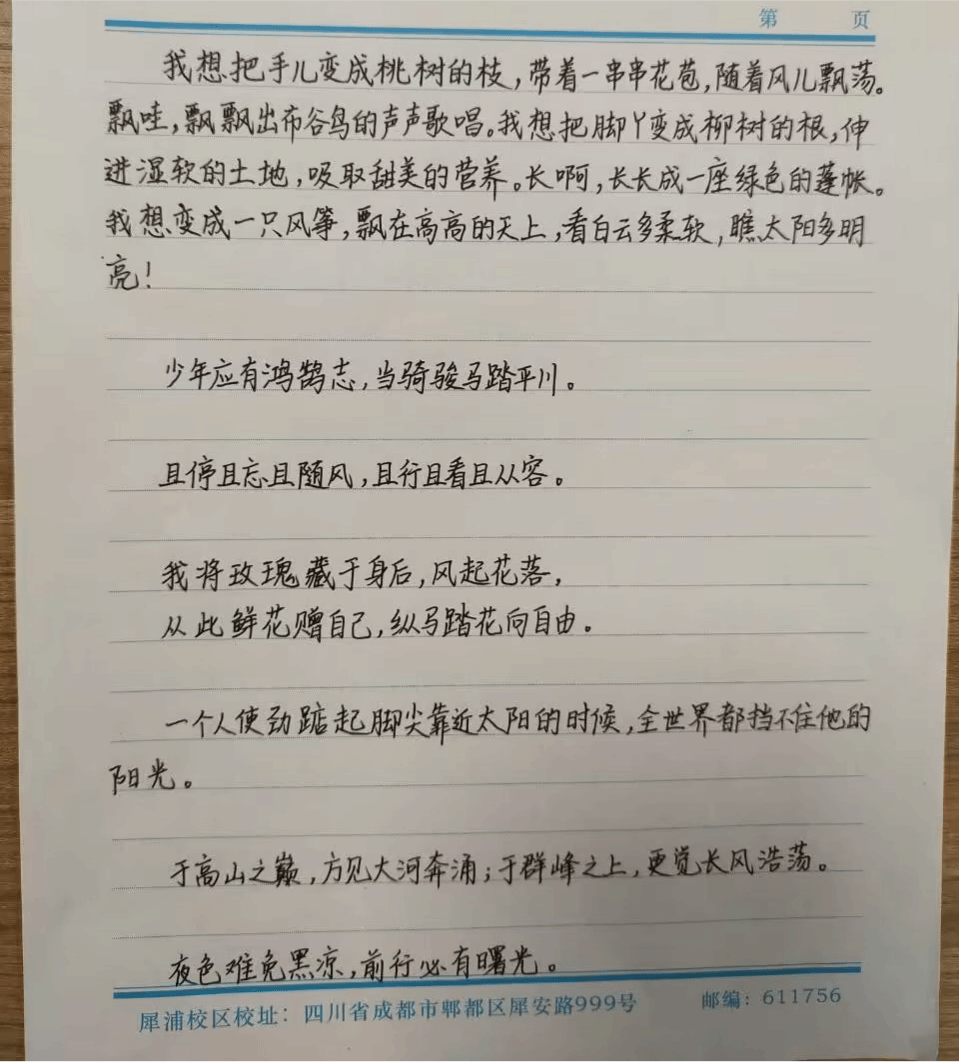 第 页
我想把手儿变成桃树的枝，带着一串串花苞，随着风儿飘荡。
飘哇，飘飘出布谷鸟的声声歌唱。我想把脚丫变成柳树的根，伸
进湿软的土地，吸取甜美的营养。长啊，长长成一座绿色的蓬帐。
我想变成一只风筝，飘在高高的天上，看白云多柔软，瞧太阳多明
亮！
少年应有鸿鹄志，当骑骏马踏平川。
且停且忘且随风，且行且看且从容。
我将玫瑰藏于身后，风起花落，
从此鲜花赠自己，纵马踏花向自由。
一个人使劲踮起脚尖靠近太阳的时候，全世界都挡不住他的
阳光。
于高山之巅，方见大河奔涌；于群峰之上，更觉长风浩荡。
夜色难免黑凉，前行必有曙光。
犀浦校区校址：四川省成都市郫都区犀安路999号 邮编：611756